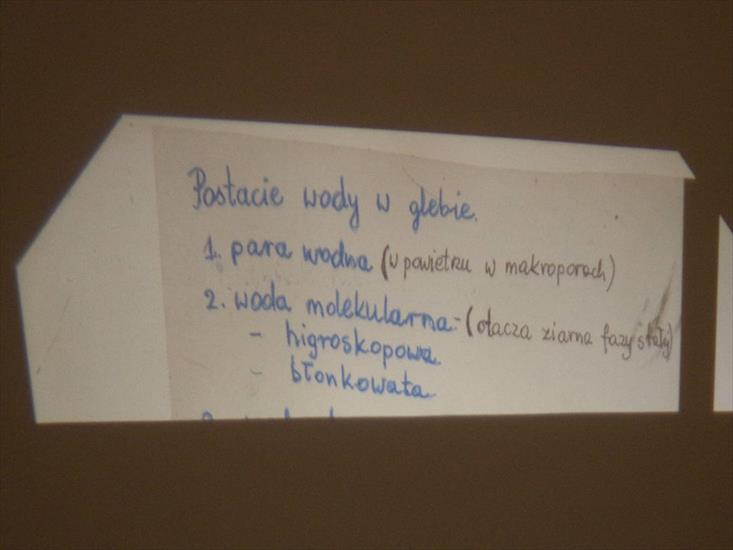 Postacie wody w glebie.
1. para wodna (w powietrzu w makroporach)
2. woda molekularna - (otacza ziarna fazy stałej)
- higroskopowa
- błonkowata